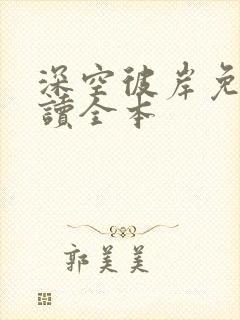 深空彼岸免
讀全本
郭美美